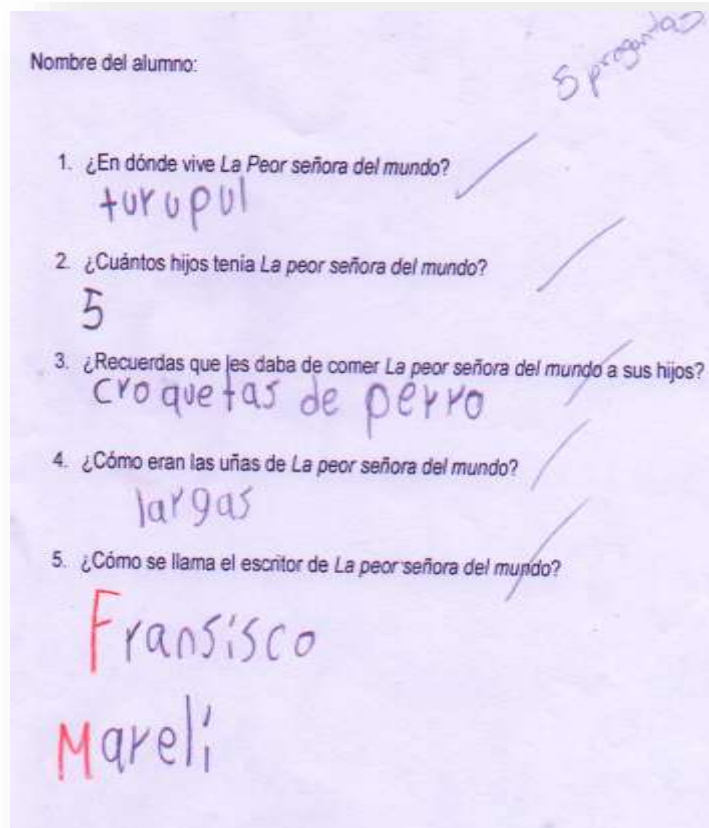 5 preguntas
Nombre del alumno:
1. ¿En dónde vive La Peor señora del mundo?
turupul
2. ¿Cuántos hijos tenía La peor señora del mundo?
5
3. ¿Recuerdas que les daba de comer La peor señora del mundo a sus hijos?
croquetas de perro
4. ¿Cómo eran las uñas de La peor señora del mundo?
largas
5. ¿Cómo se llama el escritor de La peor señora del mundo?
Fransisco
Mareli